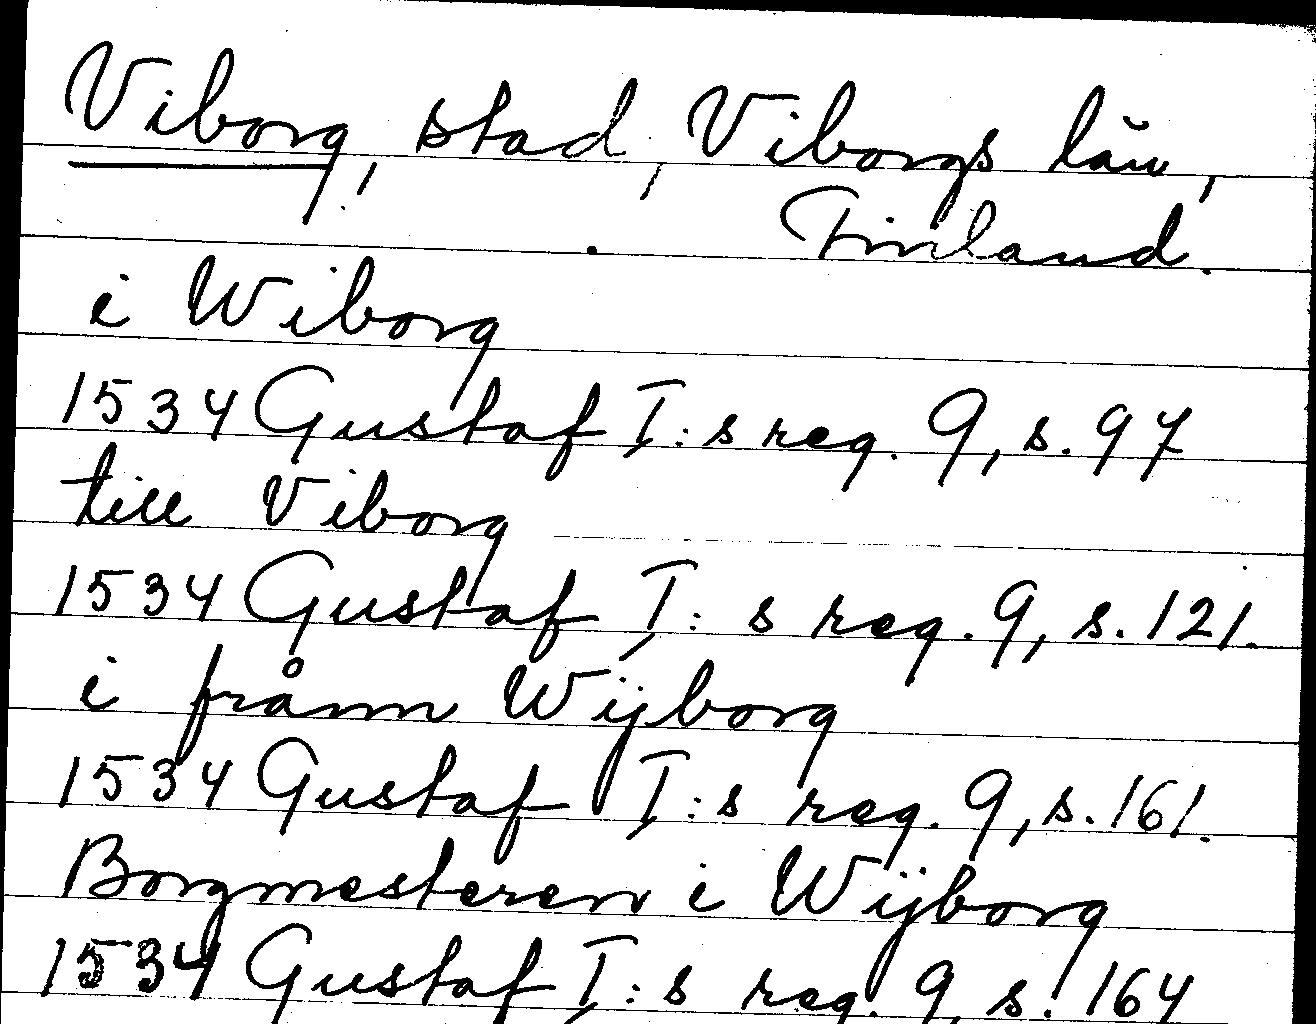 Viborg, stad, Viborgs län,
Finland.
i Wiborg
1534 Gustaf I:s reg. 9, s. 97
till Viborg
1534 Gustaf I:s reg. 9, s. 121.
i frånn Wijborg
1534 Gustaf I:s reg. 9, s. 161.
Borgmesteren i Wijborg
1534 Gustaf I:s reg. 9, s. 164